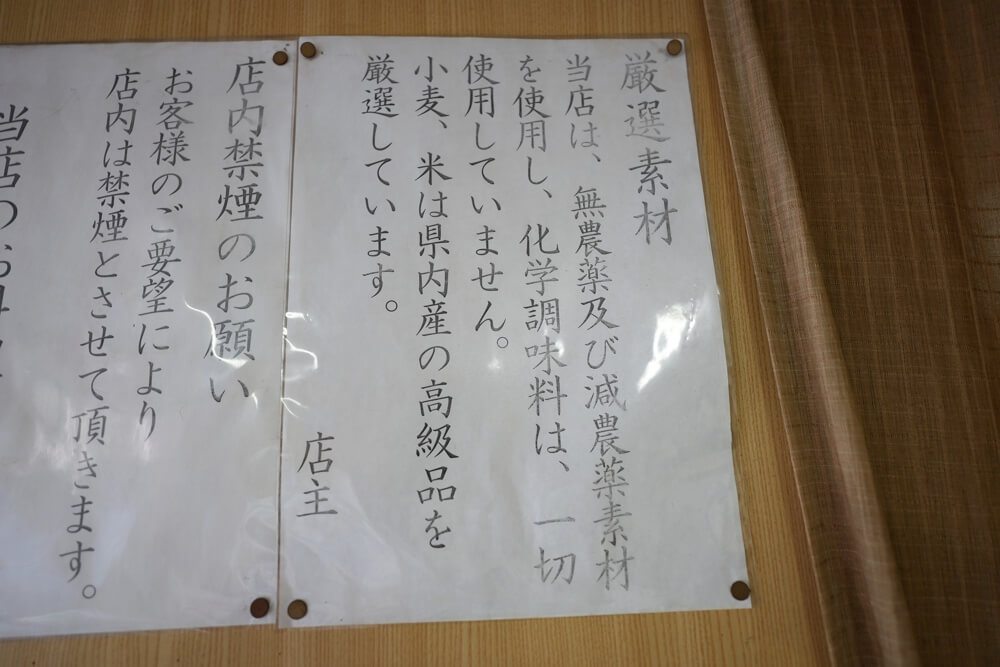 厳選素材
当店は、無農薬及び減農薬素材
を使用し、化学調味料は、一切
使用していません。
小麦、米は県内産の高級品を
厳選しています。
店主
店内禁煙のお願い
お客様のご要望により
店内は禁煙とさせて頂きます。
当店のお